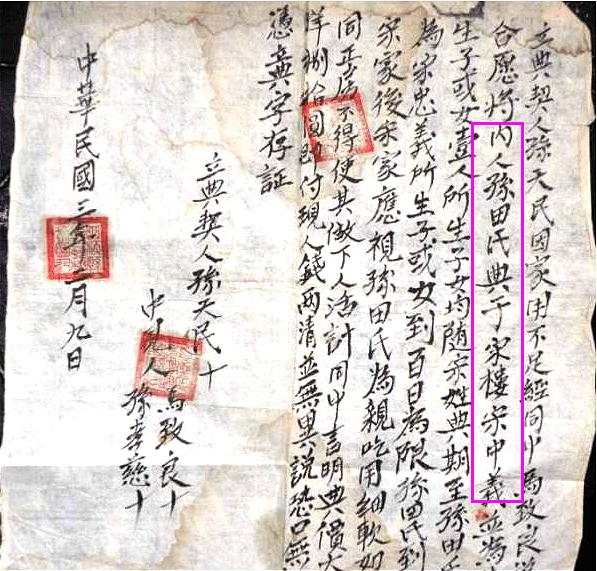 立典契人孫天民因家用不足經同中馬致良
合愿將內人孫田氏典于宋樓宋中義並為
生子或女壹人所生子女均随宋姓典期至孫田氏
為宋忠義所生子或女到百日為限孫田氏到
宋家後宋家應視孫田氏為親吃用細軟如
同正房不得使其做下人活計同中言明典價大
洋捌拾圓即付現人錢兩清並無異說恐口無
憑立典字存証
立典契人孫天民十
中見人馬致良十
孫孝慈十
中華民國三年二月九日